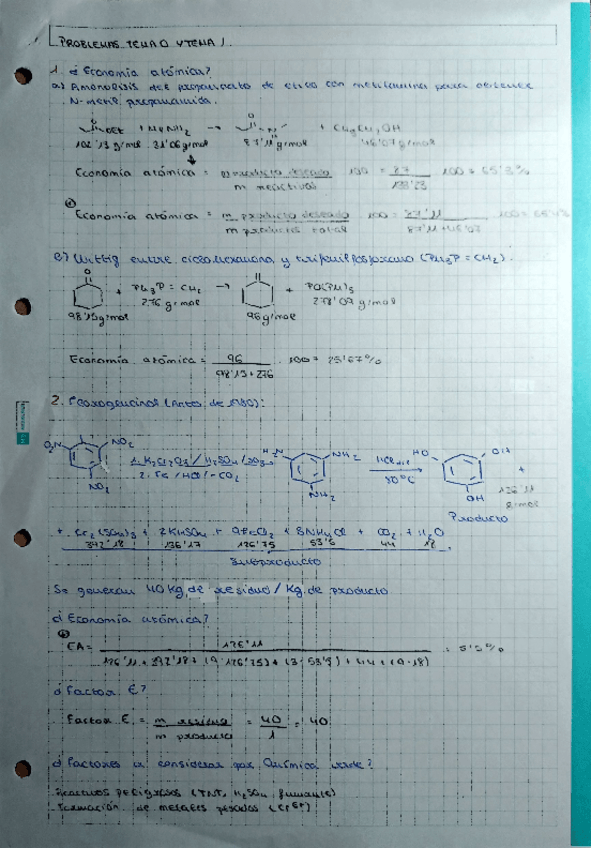 PROBLEMAS TEMA 0 Y TEMA 1.
1. ¿Economía atómica?
a) Amonolisis del propanoato de etilo con metilamina para obtener
N-metil propanamida.
OEt + MeNH2 → + CH3CH2OH
102'13 g/mol 31'06 g/mol 87'11 g/mol 46'07 g/mol
Economía atómica = m producto deseado / m reactivos · 100 = 87 / 133'23 · 100 = 65'3%
Economía atómica = m producto deseado / m productos total · 100 = 87'11 / 87'11+46'07 · 100 =
e) Wittig entre ciclohexanona y trifenilfosforano (Ph3P = CH2).
O + Ph3P = CH2 → + PO(Ph)3
98'15 g/mol 276 g/mol 96 g/mol 278'09 g/mol
Economía atómica = 96 / 98'15 + 276 · 100 = 25'67%
2. Floroglucinol (Antes de 1980):
O2N NO2 NO2 1. K2Cr2O7 / H2SO4 / SO3 2. Fe / HCl / -CO2 H2N NH2 NH2 HCl 90°C HO OH OH + 126'11 g/mol
Producto
+ Cr2(SO4)3 + 2KHSO4 + 9FeCl2 + 3NH4Cl + CO2 + H2O
392'18 136'17 126'75 53'5 44 18
Subproducto
Se generan 40 Kg de residuo / Kg de producto
¿Economía atómica?
EA = 126'11 / 126'11 + 392'18 + (9·126'75) + (3·53'5) + 44 + (9·18) = 5'5%
¿Factor E?
Factor E = m residuo / m producto = 40 / 1 = 40
¿Factores a considerar por Química verde?
-Reactivos peligrosos (TNT, H2SO4 fumante)
-Formación de metales pesados (Cr